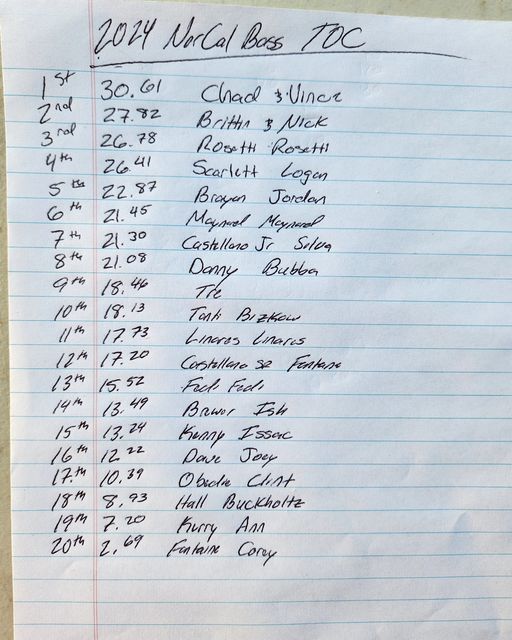 2024 NorCal Bass TOC
1st 30.61 Chad & Vince
2nd 27.82 Brittn & Nick
3rd 26.78 Rosetti Rosetti
4th 26.41 Scarlett Logan
5th 22.87 Brayan Jordan
6th 21.45 Maynard Maynard
7th 21.30 Castellano Jr Silva
8th 21.08 Danny Bubba
9th 18.46 Tre
10th 18.13
11th 17.73 Linares Linares
12th 17.20 Castellano Sr Fontane
13th 15.52
14th 13.49 Ish
15th 13.24 Kenny Issac
16th 12.22 Dave Joey
17th 10.39 Obedie Clint
18th 8.93 Hall Buckholtz
19th 7.20 Kerry Ann
20th 2.69 Fontaine Corey